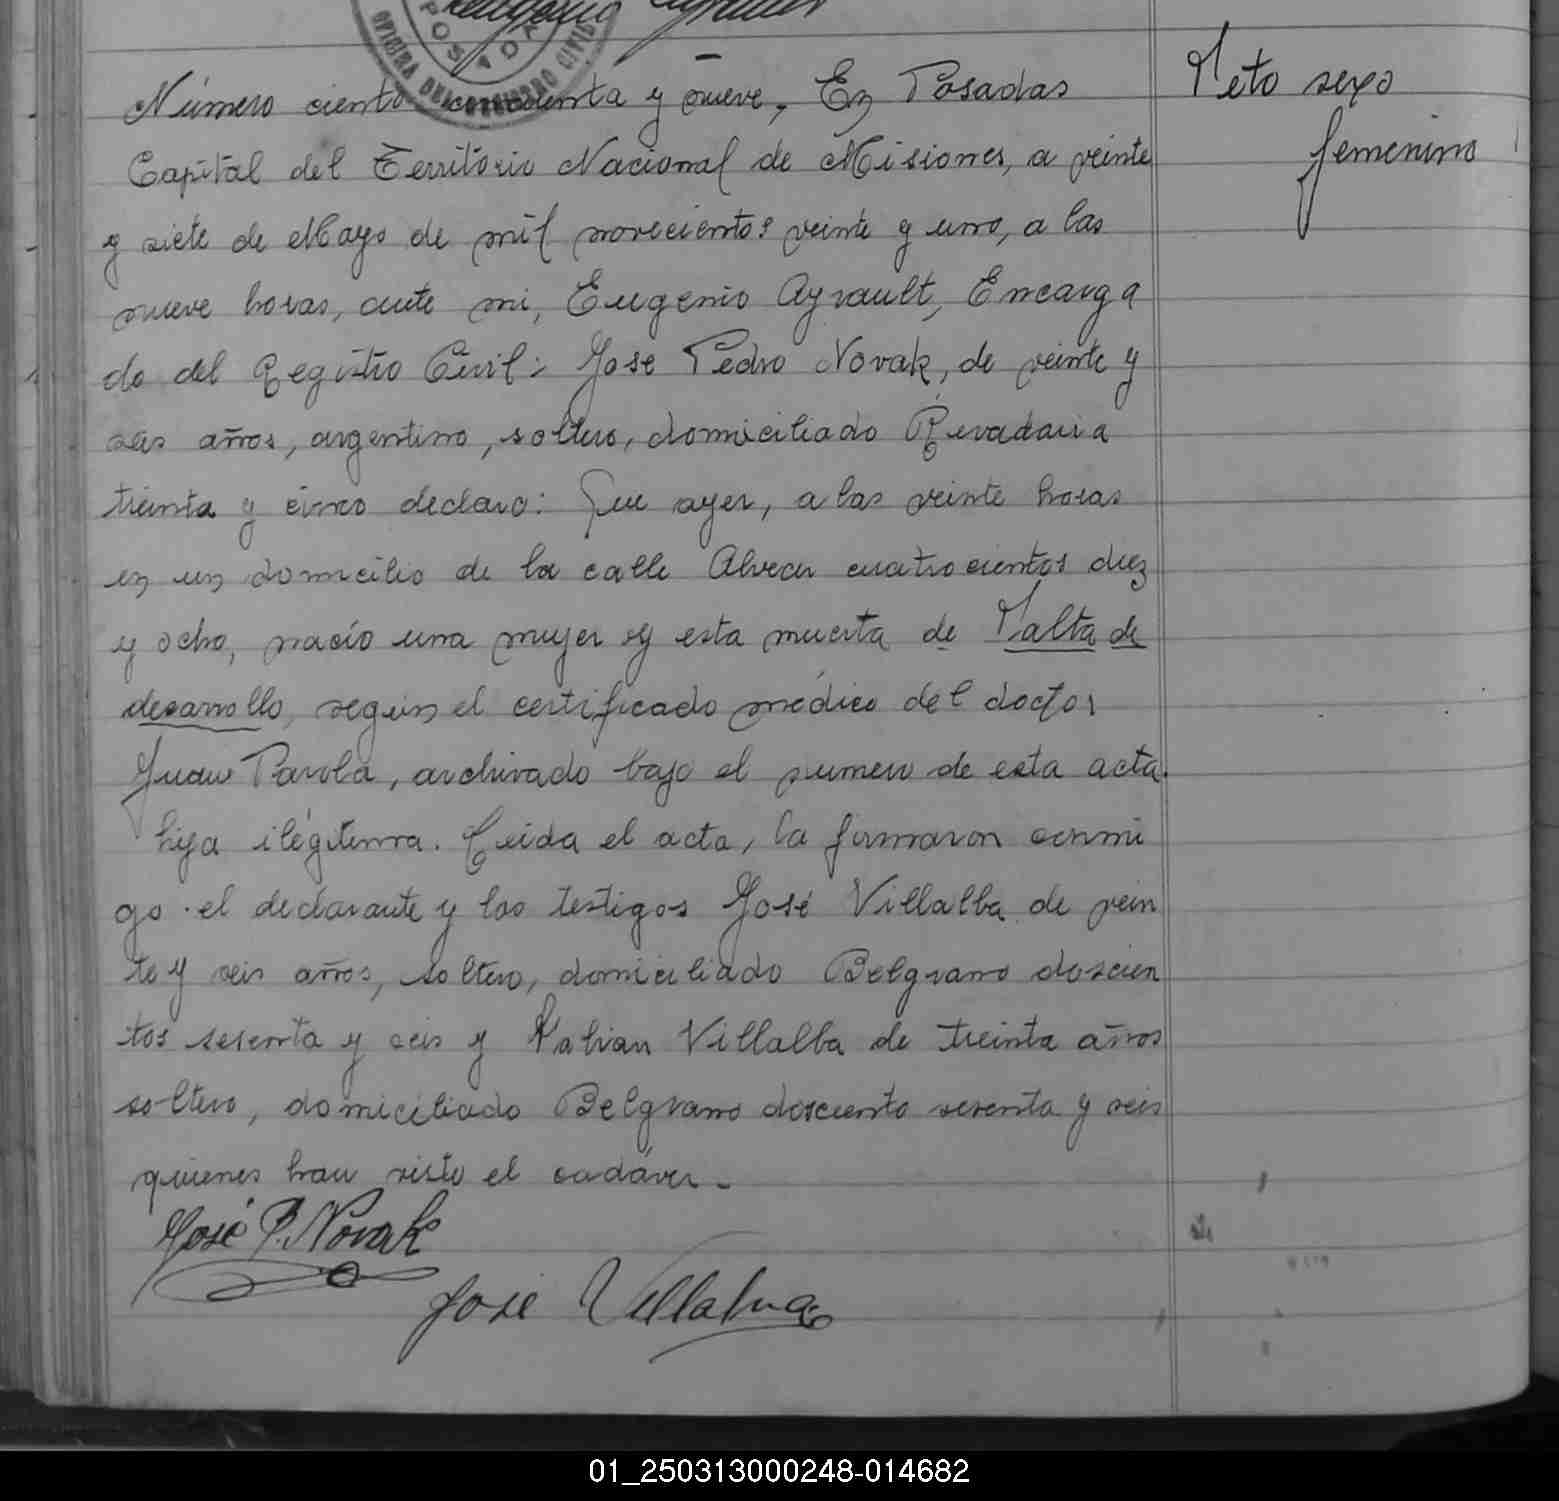 OFICINA DEL REGISTRO CIVIL
POSADAS
Número ciento cincuenta y nueve, En Posadas
Capital del Territorio Nacional de Misiones, a veinte
y siete de Mayo de mil novecientos veinte y uno, a las
nueve horas, ante mi, Eugenio Ayrault, Encarga
do del Registro Civil: Jose Pedro Novak, de veinte y
seis años, argentino, soltero, domiciliado Rivadavia
treinta y cinco declaro: Que ayer, a las veinte horas
en un domicilio de la calle Alvear cuatrocientos diez
y ocho, nació una mujer y esta muerta de Falta de
desarrollo, según el certificado médico del doctor
Juan Parola, archivado bajo el numero de esta acta.
hija ilégitima. Leida el acta, la firmaron conmi
go el declarante y los testigos José Villalba de vein
te y seis años, soltero, domiciliado Belgrano doscien
tos sesenta y seis y Fabian Villalba de treinta años
soltero, domiciliado Belgrano dosciento sesenta y seis
quienes han visto el cadáver.
José P. Novak
Jose Villalva
Feto sexo
femenino
01_250313000248-014682